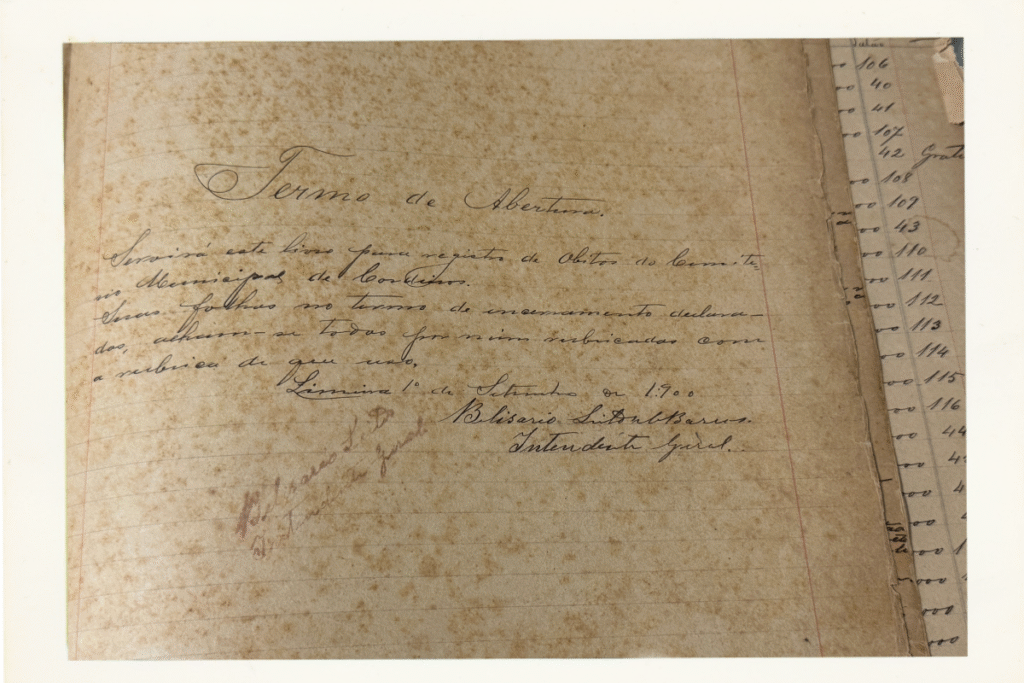 Termo de Abertura.
Servirá este livro para registro de Obitos do Cemite-
rio Municipal de Cordeiros.
Suas folhas no termo de encerramento declara-
das, acham-se todas por mim rubricadas com
a rubrica de que uso.
Limeira 1º de Setembro de 1900
Belisario
Intendente Geral.
Belisario
Intendente Geral
Valor
106
40
41
107
42 Gratis
108
109
43
110
111
112
113
114
115
116
44